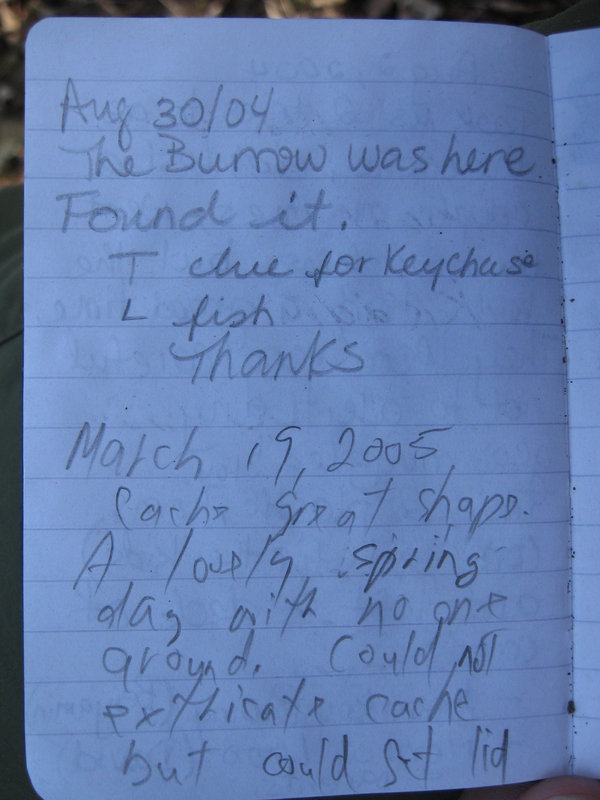 Aug 30/04
The Burrow was here
Found it.
T clue for Keychase
L fish
Thanks
March 19, 2005
Cache great shape.
A lovely spring
day with no one
around. Could not
exthicate cache
but could get lid